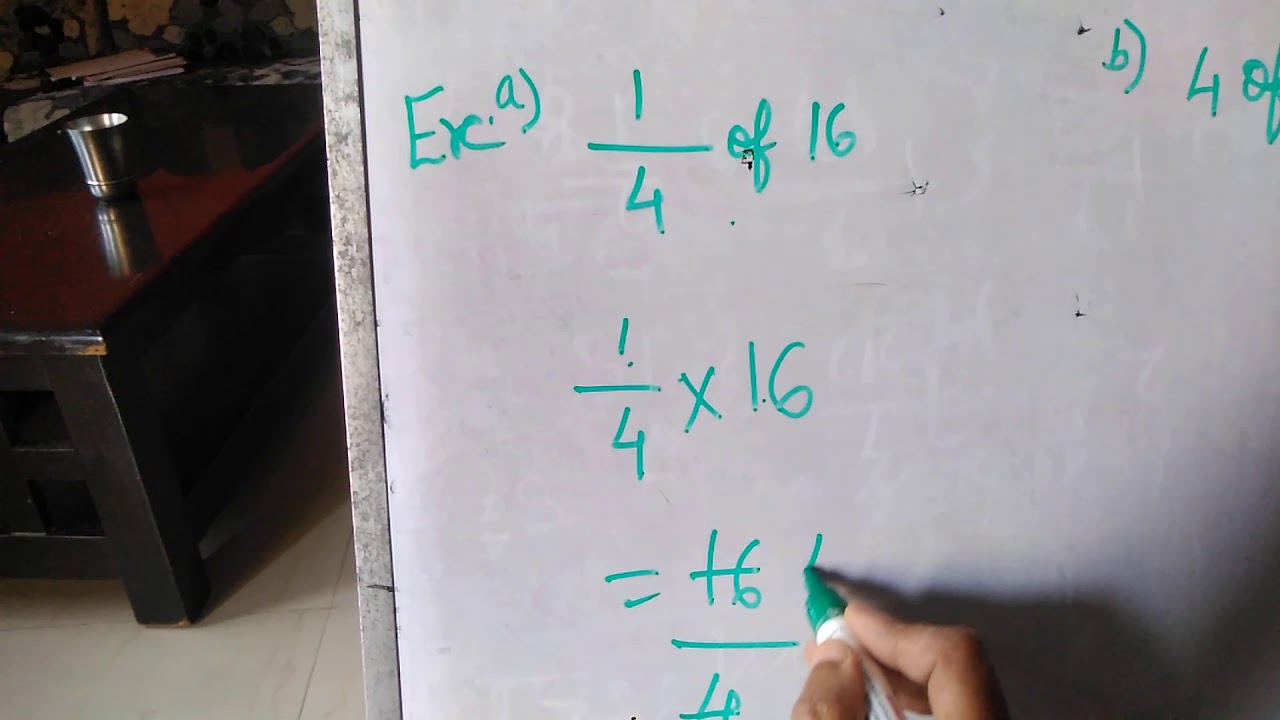 Ex. a) 1/4 of 16
b) 4 of
1/4 x 16
= 16/4